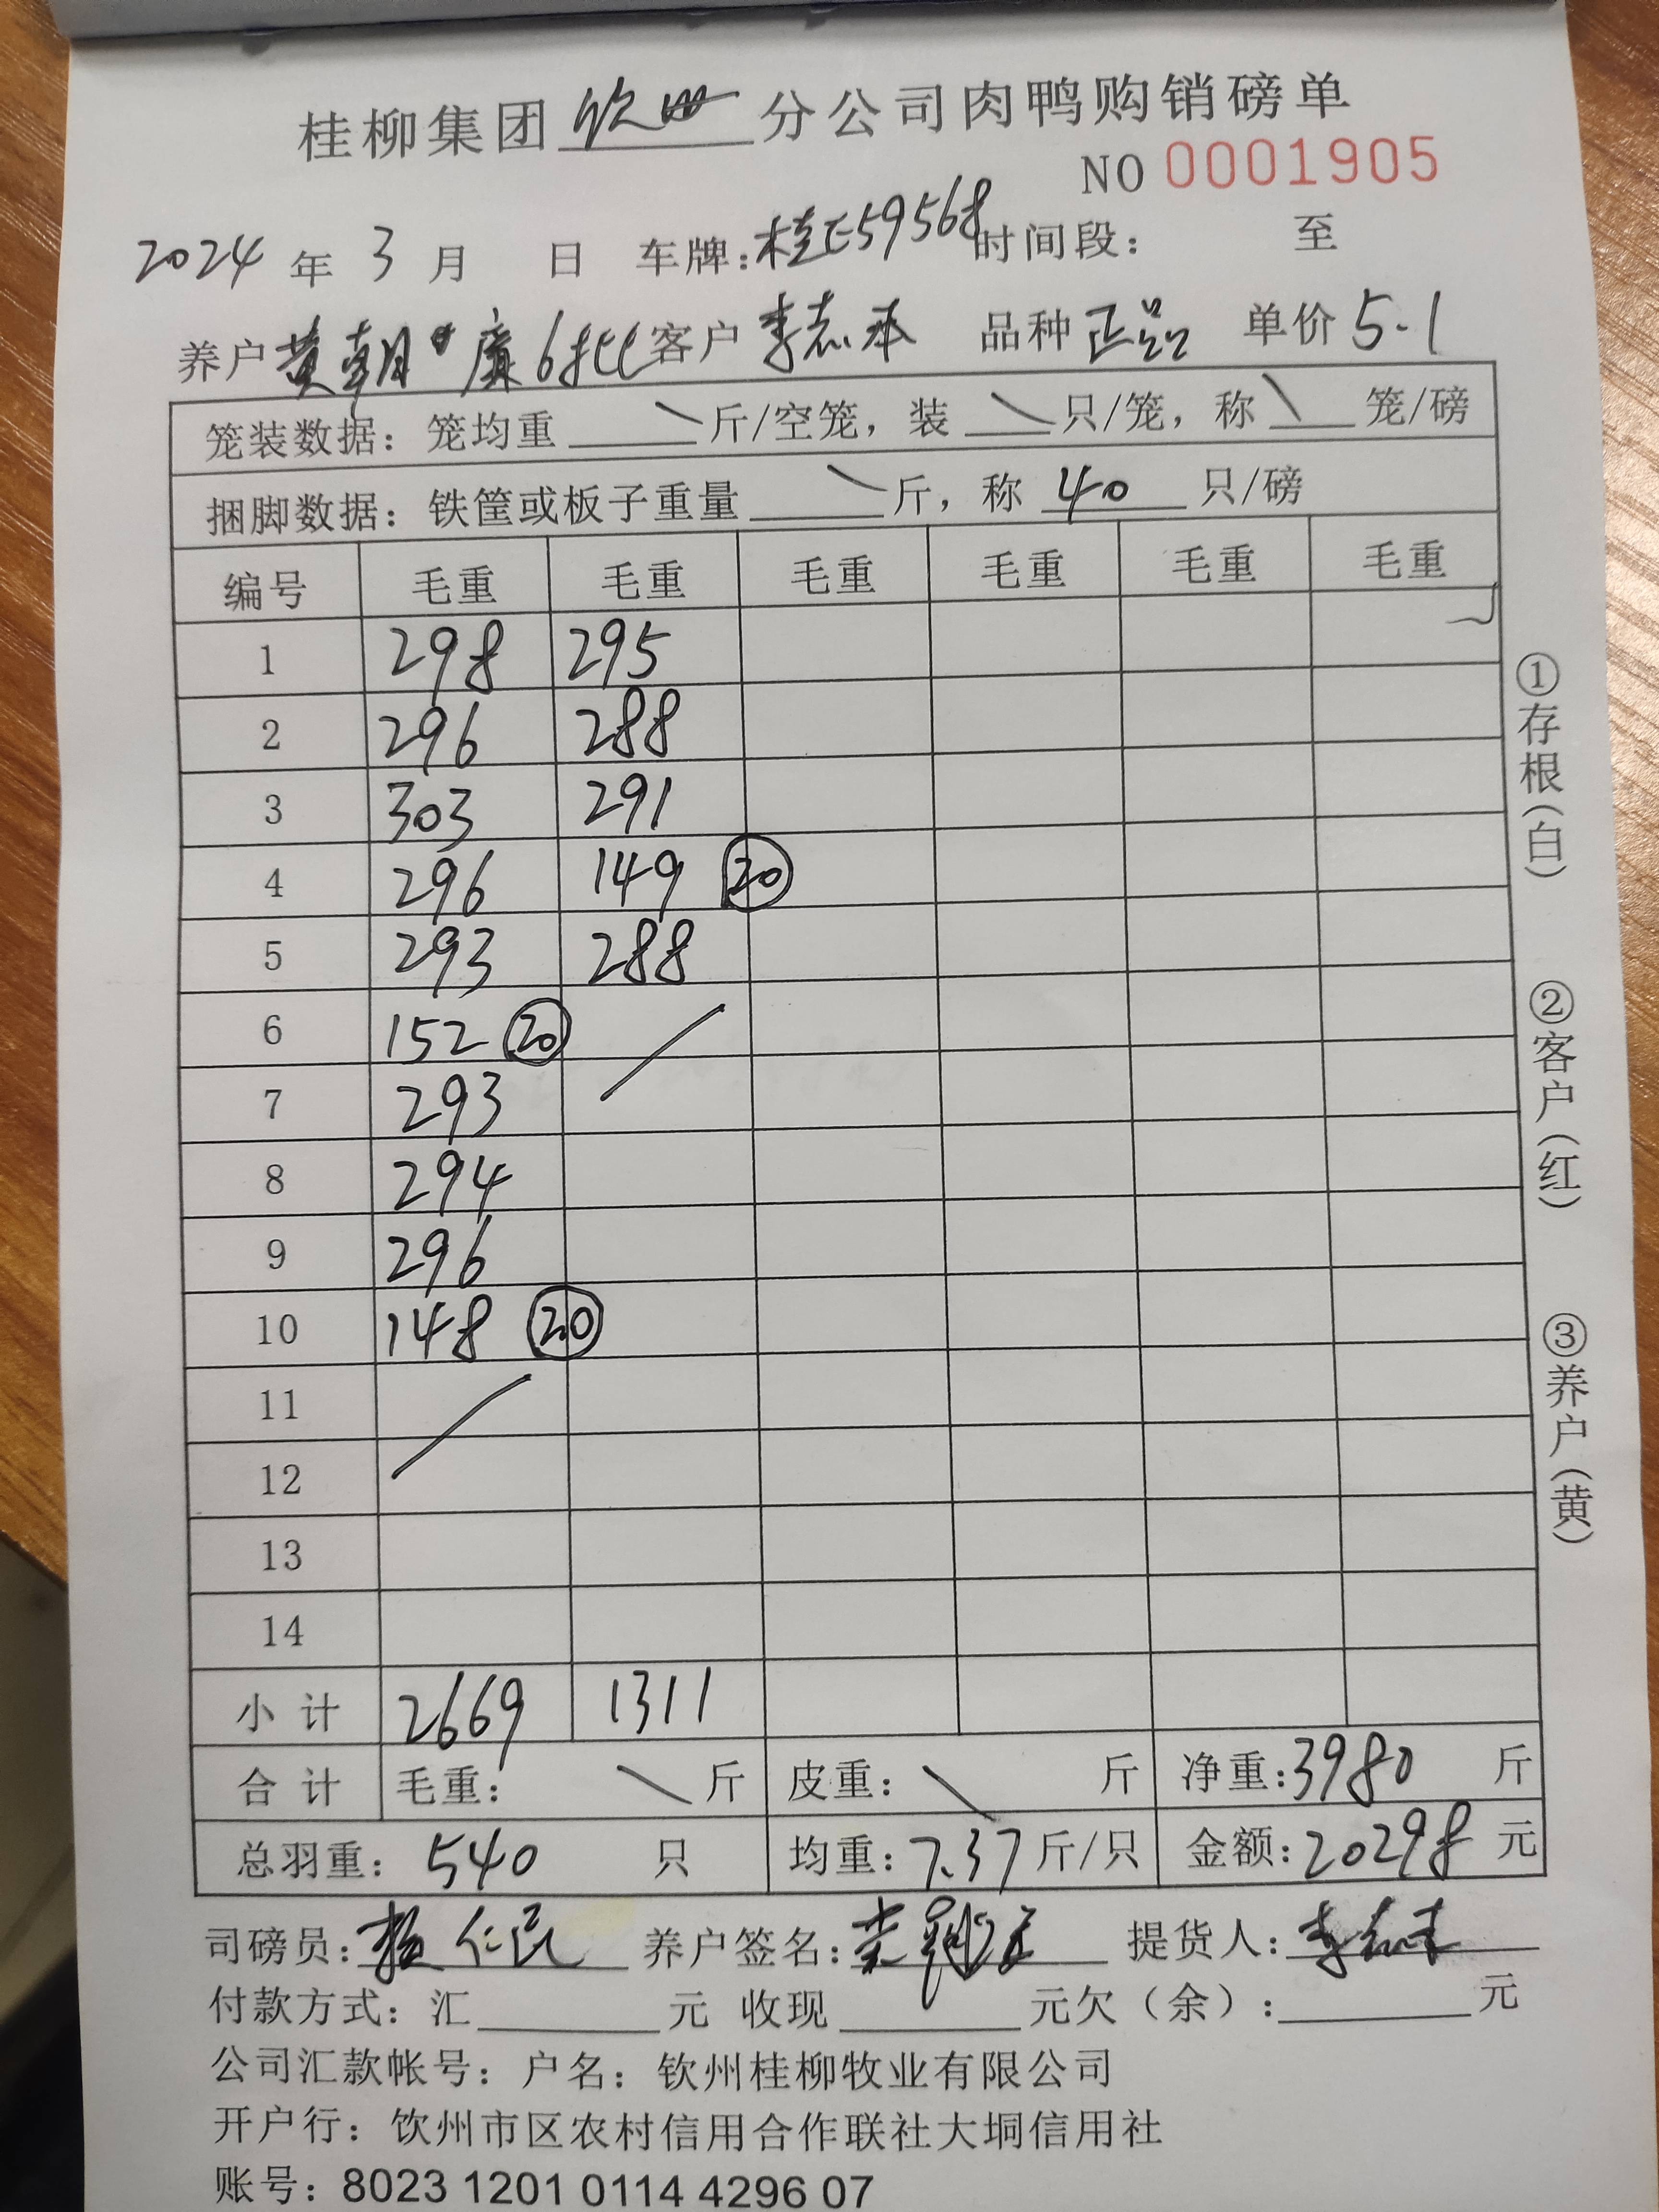 桂柳集团钦州分公司肉鸭购销磅单
NO 0001905
2024 年 3 月 日 车牌:桂E59568 时间段: 至
养户 黄朝 廉 客户 李志本 品种 正品 单价 5.1
笼装数据: 笼均重 \ 斤/空笼, 装 \ 只/笼, 称 \ 笼/磅
捆脚数据: 铁筐或板子重量 \ 斤, 称 40 只/磅
编号 毛重 毛重 毛重 毛重 毛重 毛重
1 298 295
2 296 288
3 303 291
4 296 149 20
5 293 288
6 152 20 /
7 293
8 294
9 296
10 148 20
11 /
12
13
14
小计 2669 1311
合计 毛重: \ 斤 皮重: \ 斤 净重:3980 斤
总羽重: 540 只 均重:7.37 斤/只 金额:20298 元
司磅员:杨仁民 养户签名: 提货人:李志本
付款方式: 汇 元 收现 元欠(余): 元
公司汇款帐号: 户名: 钦州桂柳牧业有限公司
开户行: 钦州市区农村信用合作联社大垌信用社
账号: 8023 1201 0114 4296 07
①存根(白)
②客户(红)
③养户(黄)